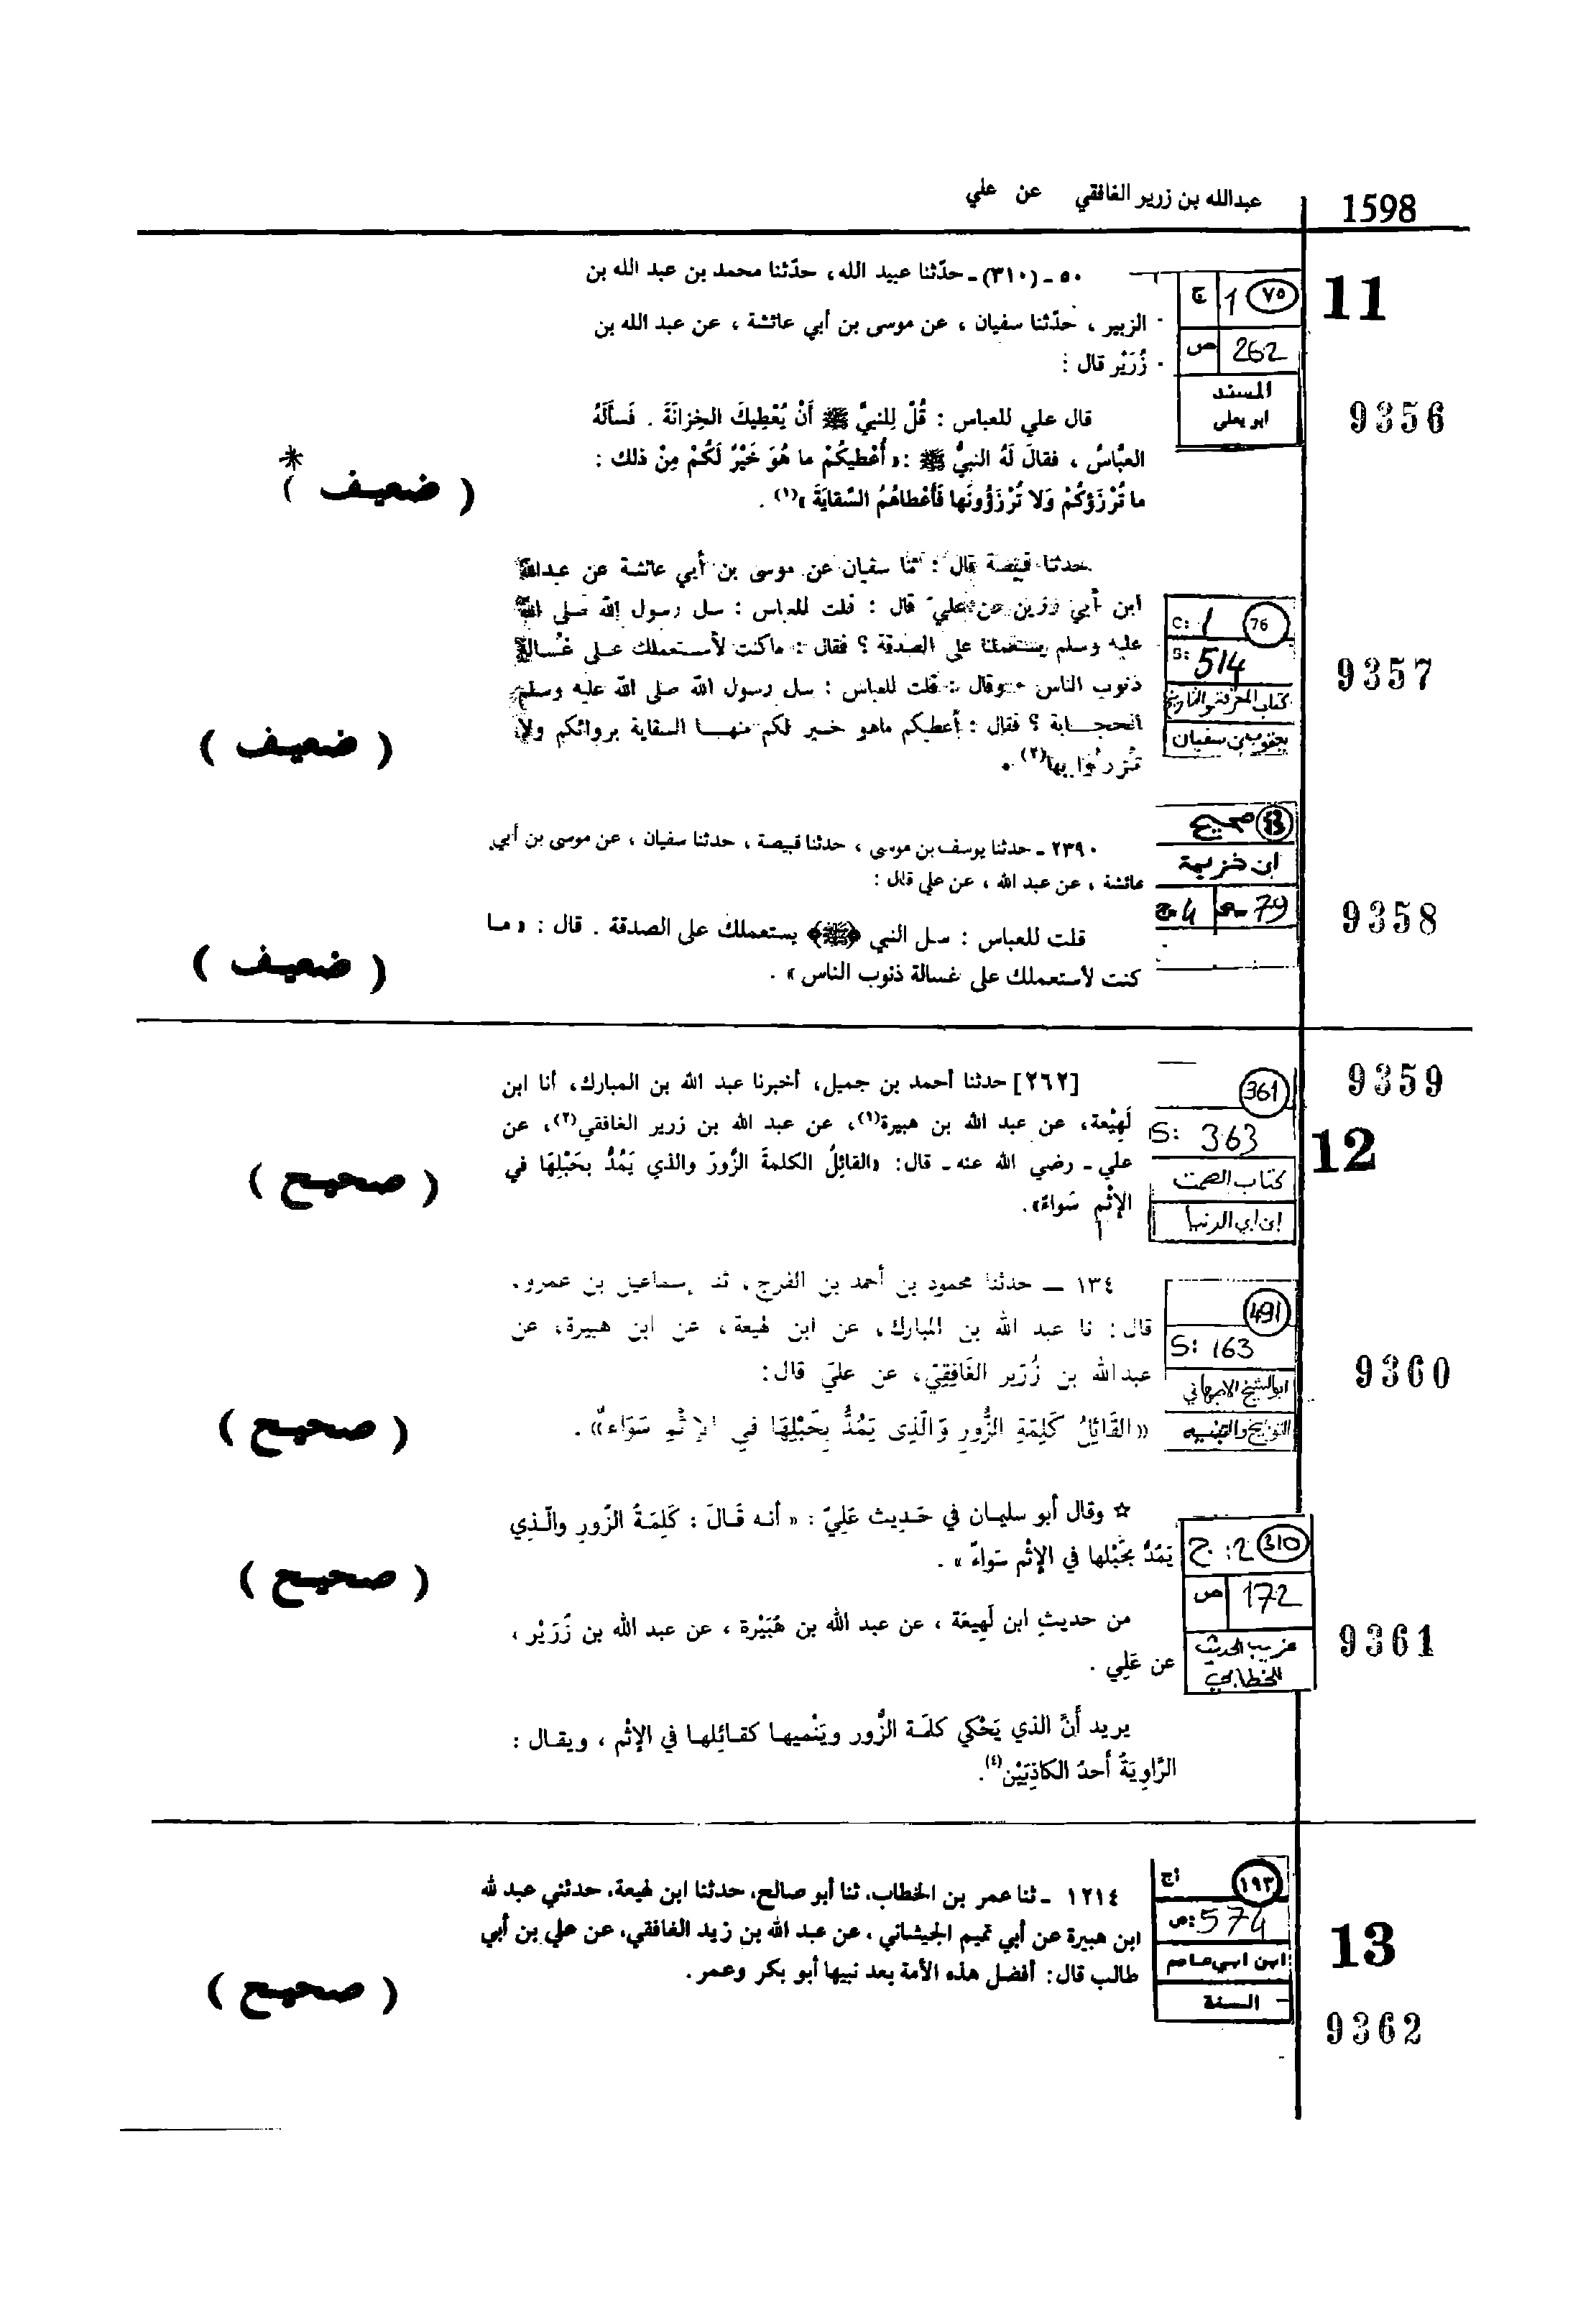 1598
عبدالله بن زرير الغافقي عن علي
11
ج 1 ٧٥
ص 262
المسند
ابو يعلى
9356
٥٠ - (٣١٠) - حدّثنا عبيد الله، حدّثنا محمد بن عبد الله بن
الزبير ، حدّثنا سفيان ، عن موسى بن أبي عائشة ، عن عبد الله بن
زُرَيْر قال :
قال علي للعباس : قُلْ لِلنبيِّ ﷺ أَنْ يُعْطِيكَ الخِزانَةَ . فَسأَلَهُ
العبَّاسُ ، فقالَ لَهُ النبيُّ ﷺ : « أُعْطيكُمْ ما هُوَ خَيْرٌ لَكُمْ مِنْ ذلك :
ما تُرْزَؤكُمْ وَلا تُرْزَؤُونَها فَأَعْطاهُمُ السِّقايَةَ »(١) .
*
( ضعيف )
C: 1 76
S: 514
كتاب المعرفة والتاريخ
يعقوب بن سفيان
9357
حدثنا قبيصة قال : ثنا سفيان عن موسى بن أبي عائشة عن عبدالله
ابن أبي رزين عن علي قال : قلت للعباس : سل رسول الله صلى الله
عليه وسلم يستعملنا على الصدقة ؟ فقال : ماكنت لأستعملك على غسالة
ذنوب الناس . وقال : قلت للعباس : سل رسول الله صلى الله عليه وسلم
الحجابة ؟ فقال : أعطيكم ماهو خير لكم منها السقاية بروائكم ولا
بها(٢) .
( ضعيف )
صحيح
ابن خزيمة
ج 4 ص 79
9358
٢٣٩٠ - حدثنا يوسف بن موسى ، حدثنا قبيصة ، حدثنا سفيان ، عن موسى بن أبي
عائشة ، عن عبد الله ، عن علي قال :
قلت للعباس : سل النبي ﴿ﷺ﴾ يستعملك على الصدقة . قال : « ما
كنت لأستعملك على غسالة ذنوب الناس » .
( ضعيف )
9359
12
361
S: 363
كتاب الصمت
ابن ابي الدنيا
[٢٦٢] حدثنا أحمد بن جميل، أخبرنا عبد الله بن المبارك، أنا ابن
لَهِيْعة، عن عبد الله بن هبيرة(١)، عن عبد الله بن زرير الغافقي(٢)، عن
علي - رضي الله عنه - قال: «القائِلُ الكلمةَ الزُّورَ والذي يَمُدُّ بحَبْلِهَا في
الإثْمِ سَواءٌ».
( صحيح )
491
S: 163
ابو الشيخ الاصبهاني
التوبيخ والتنبيه
9360
١٣٤ — حدثنا محمود بن أحمد بن الفرج، ثنا إسماعيل بن عمرو،
قال: نا عبد الله بن المبارك، عن ابن لهيعة، عن ابن هبيرة، عن
عبدالله بن زُرَير الغَافِقِيّ، عن عليّ قال:
«القَائِلُ كَلِمَةِ الزُّورِ وَالَّذِى يَمُدُّ بِحَبْلِهَا في الإِثْمِ سَوَاءٌ» .
( صحيح )
310 2 : ج
172 ص
غريب الحديث
للخطابي
9361
☆ وقال أبو سليمان في حَدِيث عَلِيّ : « أنه قَالَ : كَلِمَةُ الزُّورِ والَّذِي
يَمُدُّ بحَبْلها في الإثْم سَواءٌ » .
من حديثِ ابن لَهِيعَة ، عن عبد الله بن هُبَيْرة ، عن عبد الله بن زُرَيْر ،
عن عَلِي .
يريد أَنَّ الذي يَحْكي كلمَة الزُّور ويَنْميها كقائِلها في الإثْم ، ويقال :
الرَّاوِيَةُ أحدُ الكاذِبَيْن(٤).
( صحيح )
ج ١٩٣
ص: 574
ابن ابي عاصم
السنة
13
9362
١٢١٤ - ثنا عمر بن الخطاب، ثنا أبو صالح، حدثنا ابن لهيعة، حدثني عبد لله
ابن هبيرة عن أبي تميم الجيشاني ، عن عبد الله بن زيد الغافقي، عن علي بن أبي
طالب قال: أفضل هذه الأمة بعد نبيها أبو بكر وعمر.
( صحيح )